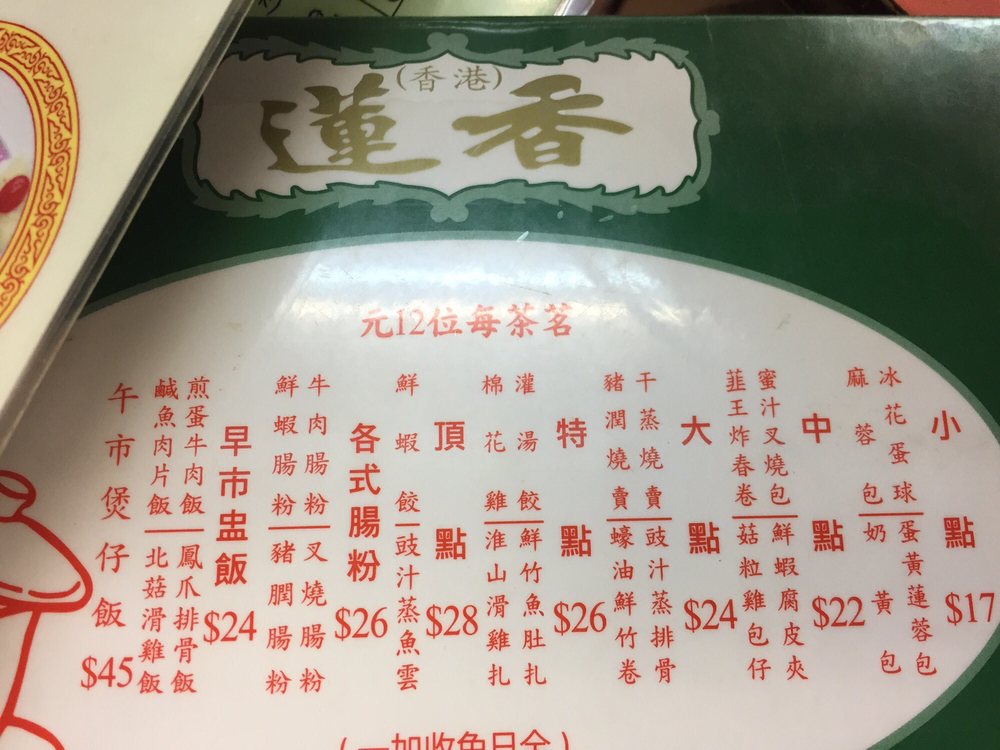 (香港)
蓮香
茗茶每位12元
小點 $17
冰花蛋球
麻蓉包
蛋黃蓮蓉包
奶黃包
中點 $22
蜜汁叉燒包
韮王炸春卷
鮮蝦腐皮夾
菇粒雞包仔
大點 $24
干蒸燒賣
豬潤燒賣
豉汁蒸排骨
蠔油鮮竹卷
特點 $26
灌湯餃
棉花雞
鮮竹魚肚扎
淮山滑雞扎
頂點 $28
鮮蝦餃
豉汁蒸魚雲
各式腸粉 $26
牛肉腸粉
鮮蝦腸粉
叉燒腸粉
豬膶腸粉
早市盅飯 $24
煎蛋牛肉飯
鹹魚肉片飯
鳳爪排骨飯
北菇滑雞飯
午市煲仔飯 $45
(全日免收加一)